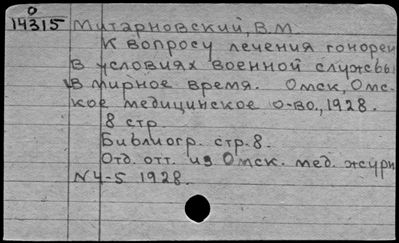 О
14315 Митарновский, В.М.
К вопросу лечения гонореи
в условиях военной службы
в мирное время. Омск, Омс-
кое медицинское о-во., 1928.
8 стр.
Библиогр. стр. 8.
Отд. отт. из Омск. мед. журн
N 4-5 1928.